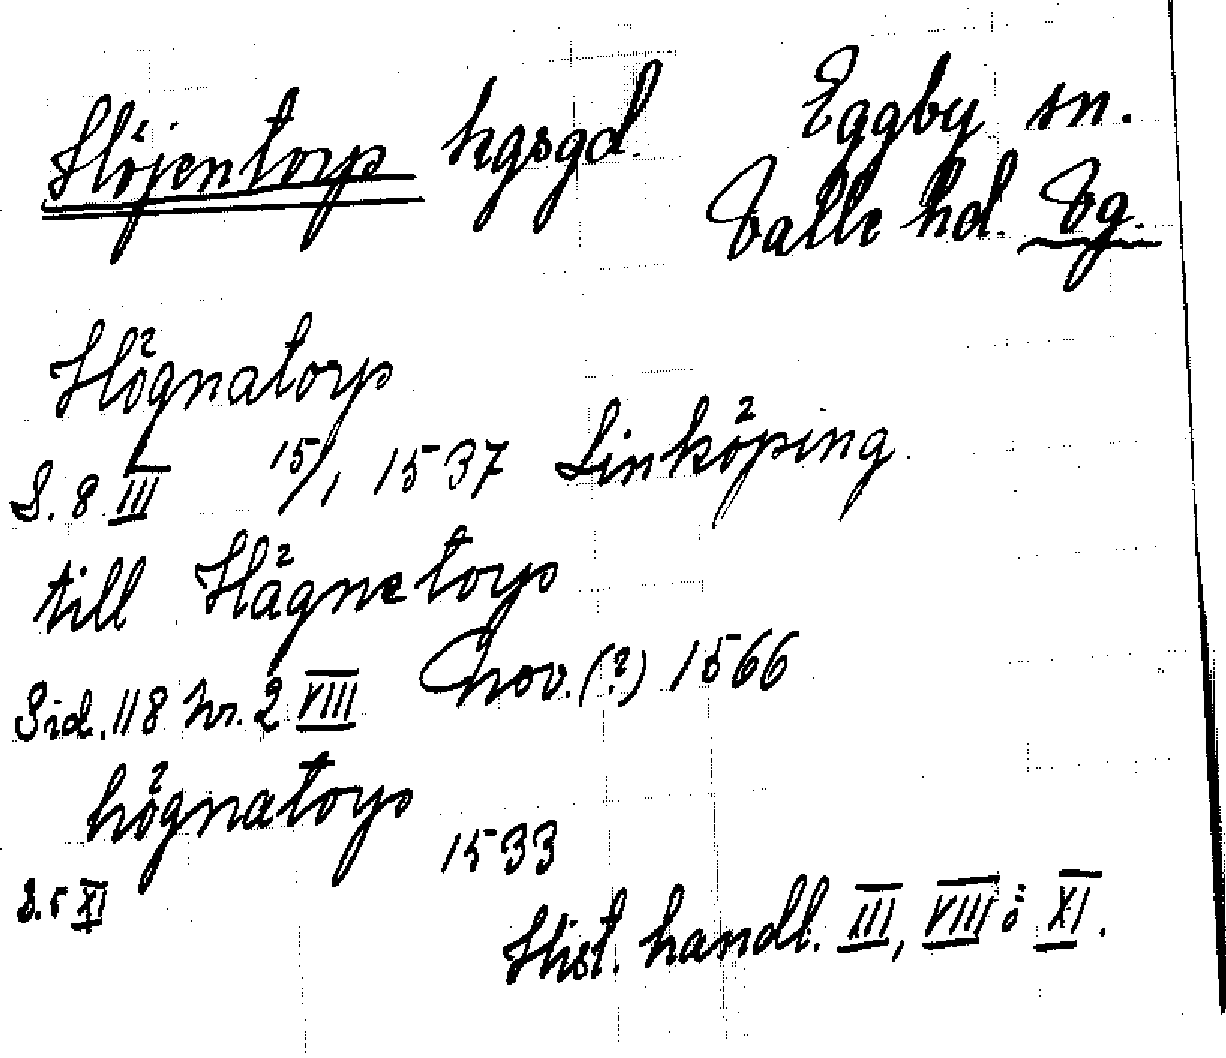 Höjentorp hgsgd. Eggby sn.
Valle hd. Vg.
Högnatorp
S. 8 III 15/1 1537 Linköping
till Hägnetorp
Sid. 118 nr. 2 VIII Nov. (?) 1566
högnatorp
S. 5 XI 1533
Hist. handl. III, VIII o XI.